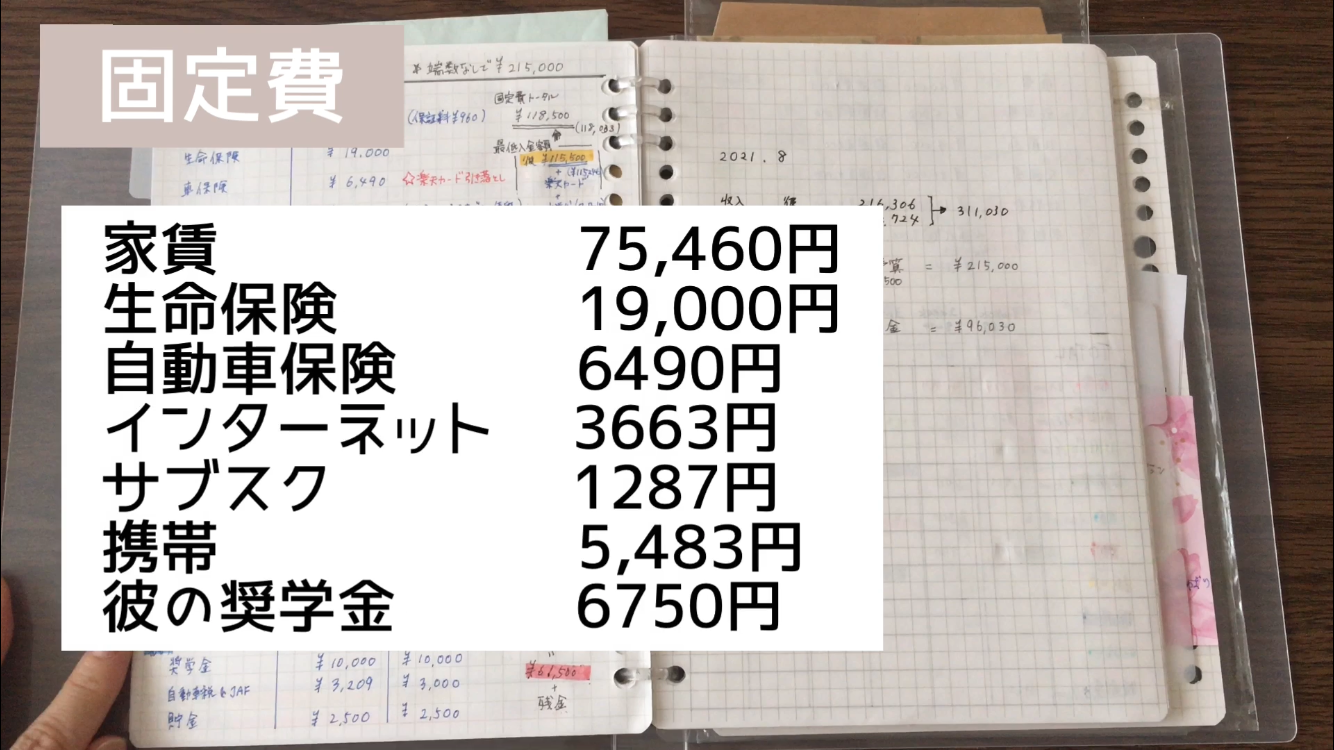 固定費
※端数なしで¥215,000
固定費トータル
(保証料¥960)
¥118,500
(118,033)
最低入金額
生命保険 ¥19,000
¥115,500
車保険 ¥6,490 ☆楽天カード引き落とし
楽天カード
2021.8
収入
216,306
724 → 311,030
算 = ¥215,000
500
金 = ¥96,030
家賃 75,460円
生命保険 19,000円
自動車保険 6490円
インターネット 3663円
サブスク 1287円
携帯 5,483円
彼の奨学金 6750円
奨学金 ¥10,000 ¥10,000
¥61,500
自動車税&JAF ¥3,209 ¥3,000
+
残金
貯金 ¥2,500 ¥2,500